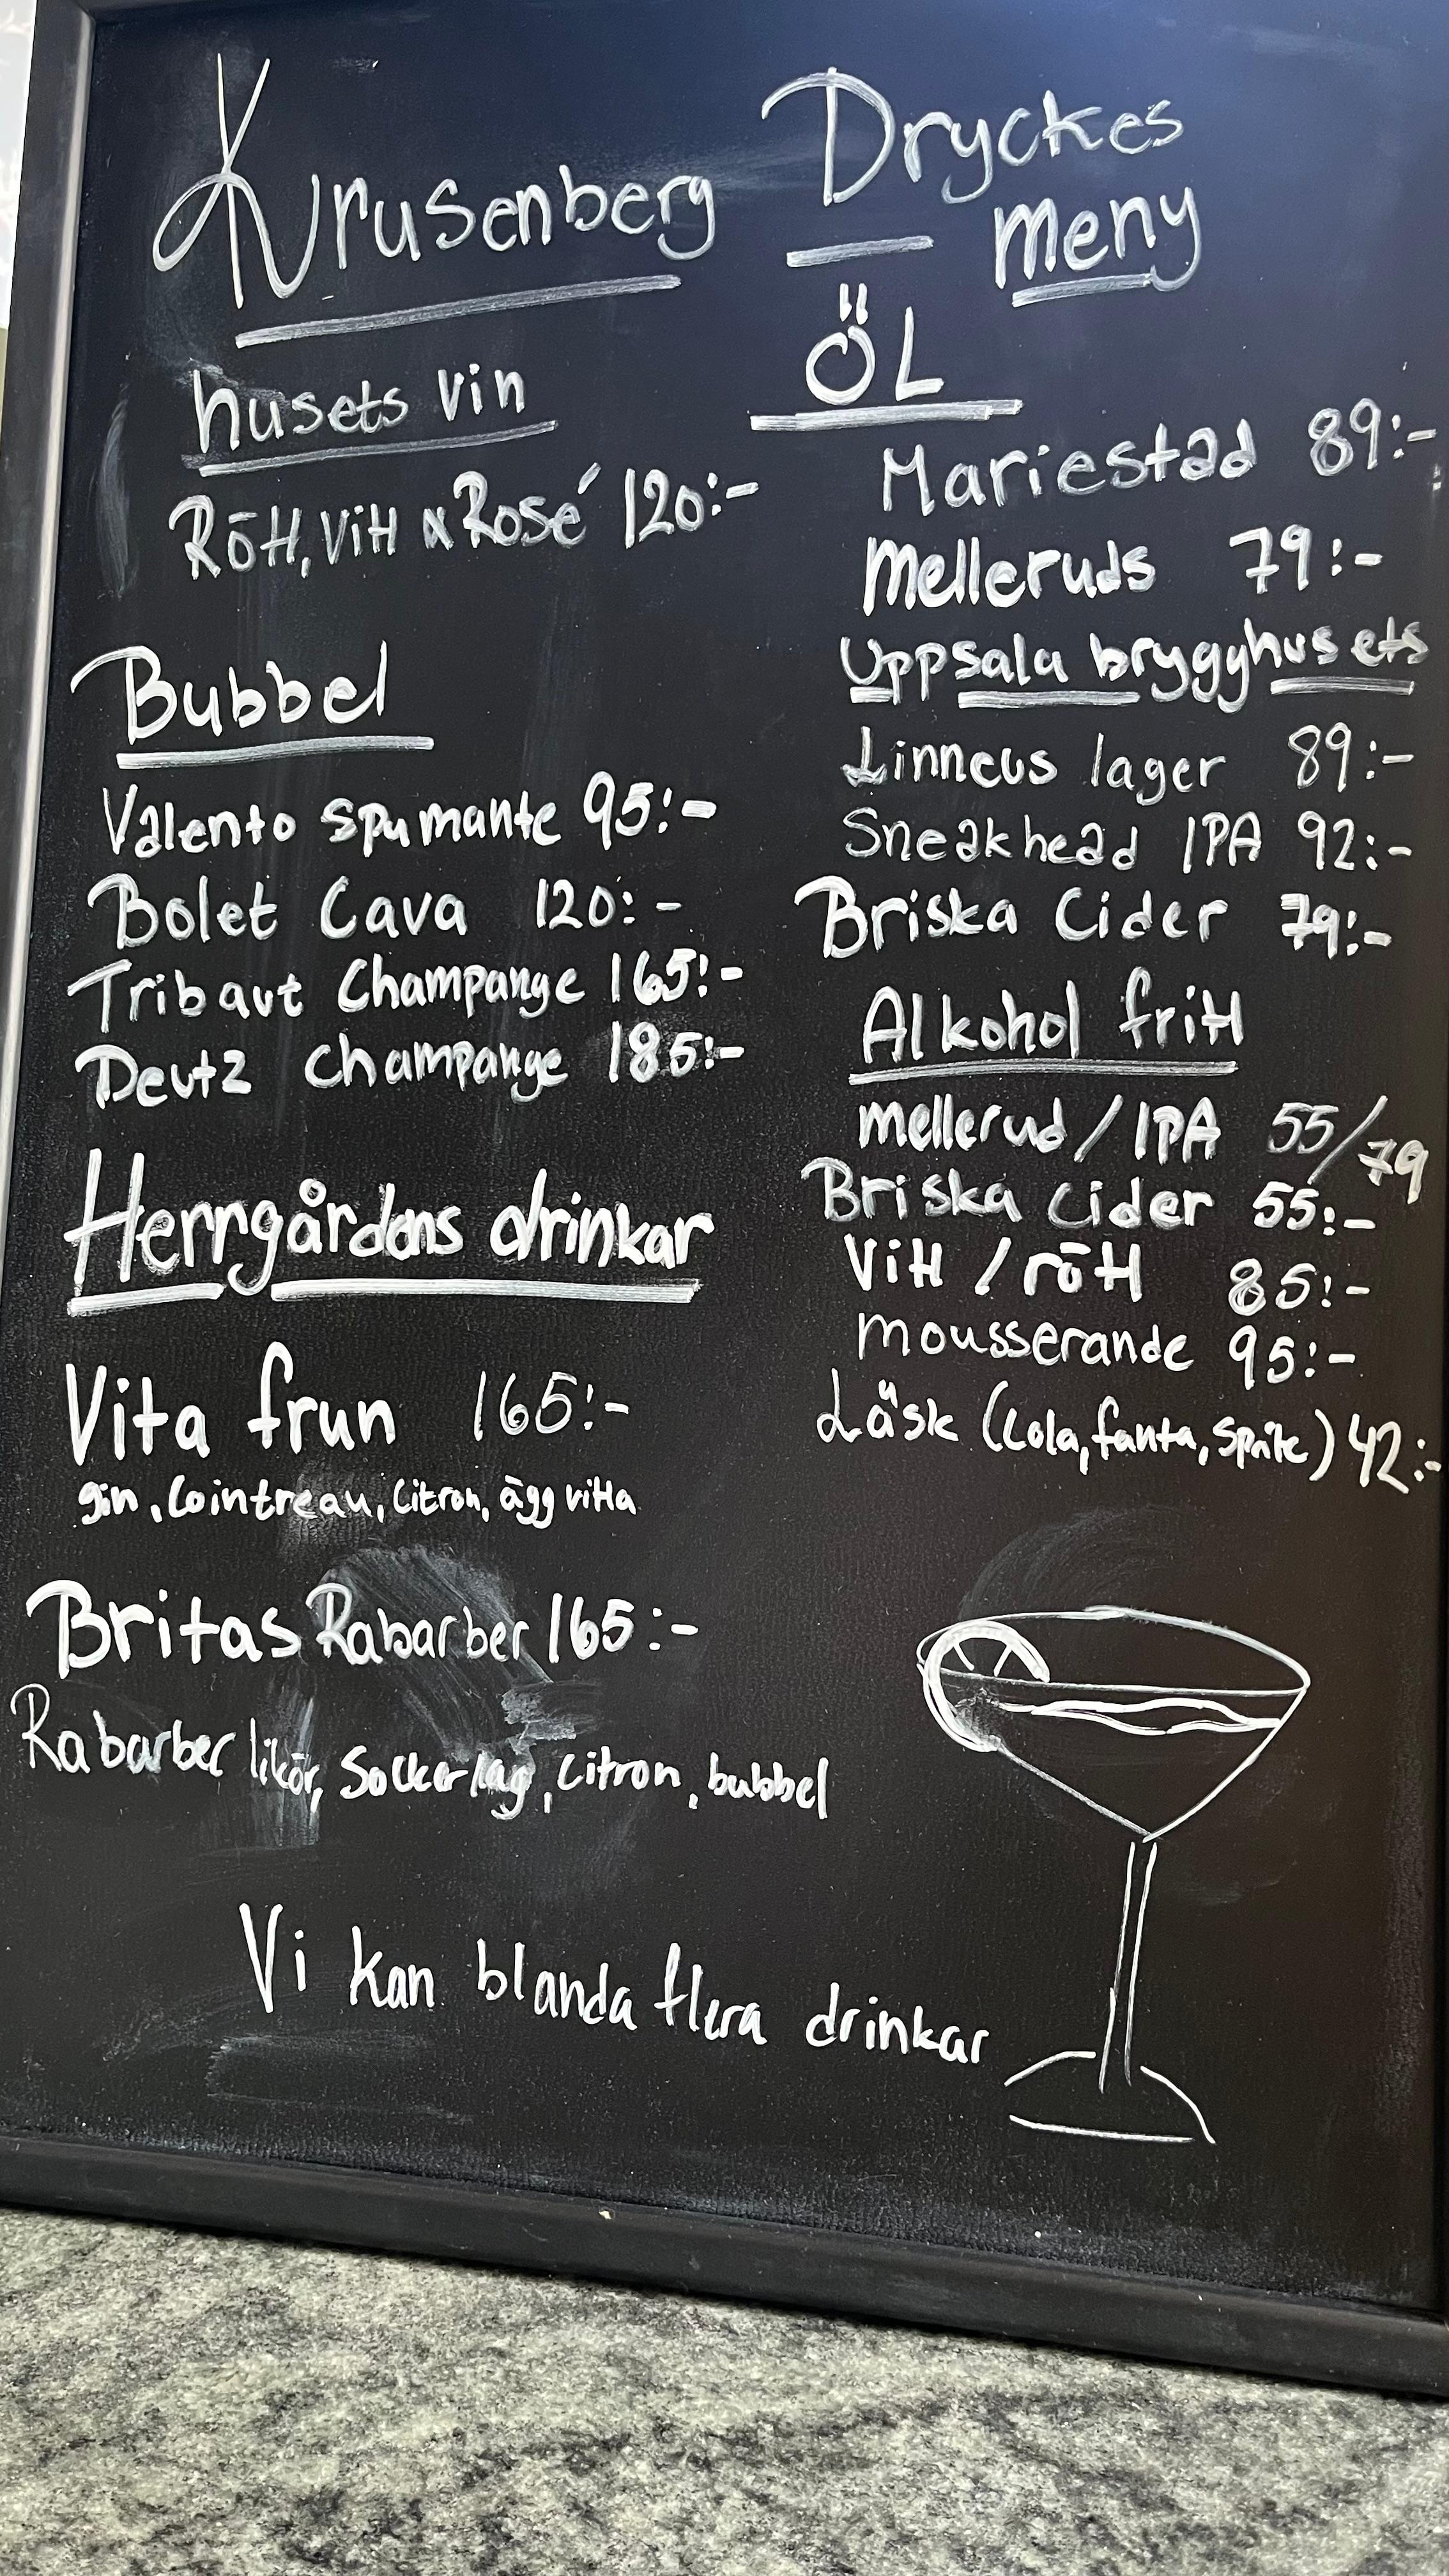 Krusenberg
Dryckes
meny
husets vin
Rött, vitt & Rosé 120:-
Bubbel
Valento spumante 95:-
Bolet Cava 120:-
Tribaut Champange 165:-
Deutz Champange 185:-
Herrgårdens drinkar
Vita frun 165:-
gin, Cointreau, Citron, ägg vitta
Britas Rabarber 165:-
Rabarber likör, Sockerlag, citron, bubbel
ÖL
Mariestad 89:-
Melleruds 79:-
Uppsala brygghusets
Linneus lager 89:-
Sneakhead IPA 92:-
Briska Cider 79:-
Alkohol fritt
Mellerud / IPA 55/79
Briska Cider 55:-
Vitt / rött 85:-
mousserande 95:-
Läsk (Cola, fanta, Sprite) 42:-
Vi kan blanda flera drinkar